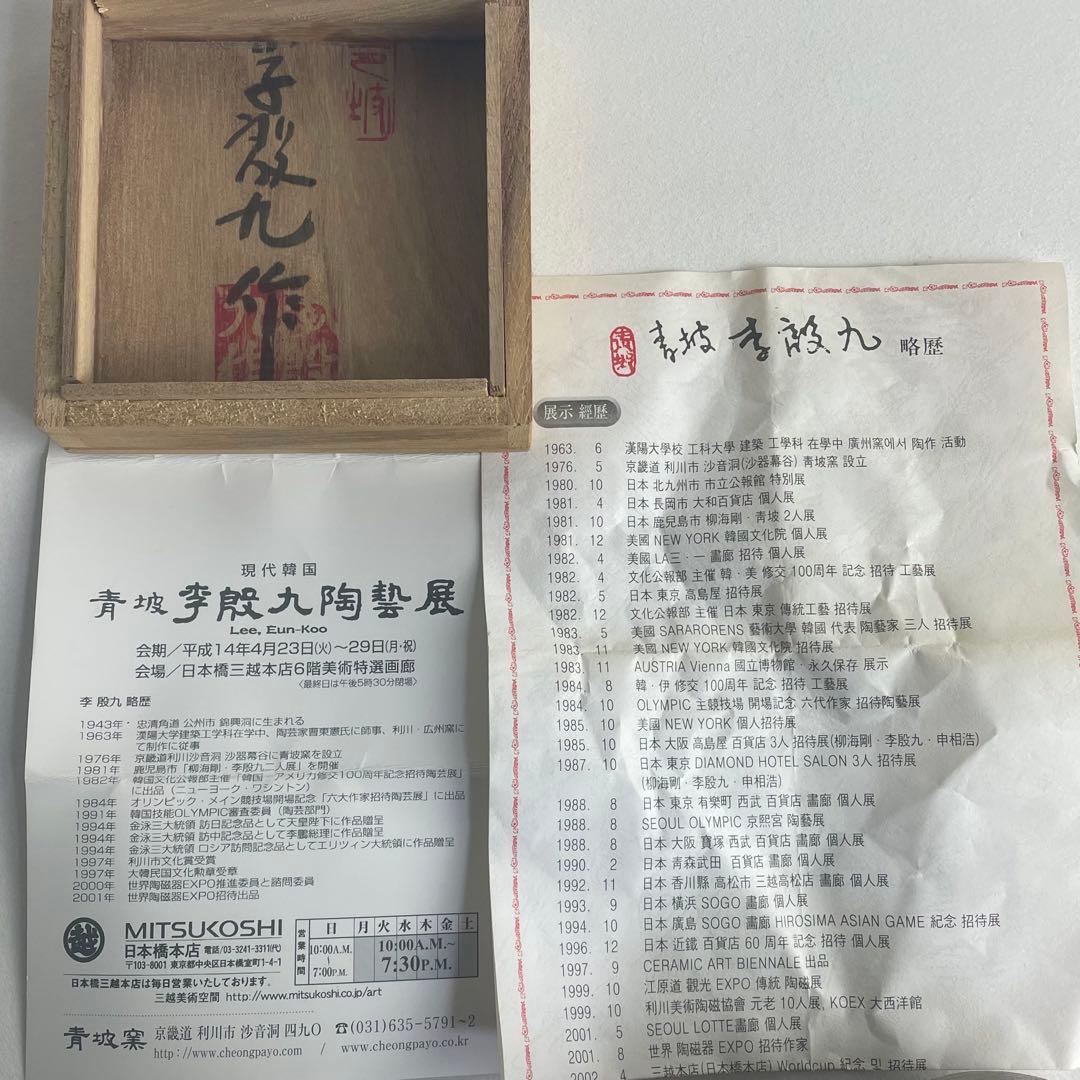 李殷九作
現代韓国
青坡 李殷九陶藝展
Lee, Eun-Koo
会期／平成14年4月23日(火)〜29日(月・祝)
会場／日本橋三越本店6階美術特選画廊
〈最終日は午後5時30分閉場〉
李 殷九 略歴
1943年・ 忠清角道 公州市 錦興洞に生まれる
1963年 漢陽大学建築工学科在学中、陶芸家曺東憲氏に師事、利川・広州窯にて制作に従事
1976年 京畿道利川沙音洞 沙器幕谷に青坡窯を設立
1981年 鹿児島市「柳海剛・李殷九二人展」を開催
1982年 韓国文化公報部主催「韓国・アメリカ修交100周年記念招待陶芸展」
に出品（ニューヨーク・ワシントン）
1984年 オリンピック・メイン競技場開場記念「六大作家招待陶芸展」に出品
1991年 韓国技能OLYMPIC審査委員（陶芸部門）
1994年 金泳三大統領 訪日記念品として天皇陛下に作品贈呈
1994年 金泳三大統領 訪中記念品として李鵬総理に作品贈呈
1994年 金泳三大統領 ロシア訪問記念品としてエリツィン大統領に作品贈呈
1997年 利川市文化賞受賞
1997年 大韓民国文化勲章受章
2000年 世界陶磁器EXPO推進委員と諮問委員
2001年 世界陶磁器EXPO招待出品
越 MITSUKOSHI
日本橋本店 電話/03-3241-3311(代)
〒103-8001 東京都中央区日本橋室町1-4-1
営業時間 日 月 火 水 木 金 土
10:00A.M.〜7:00P.M. 10:00A.M.〜7:30P.M.
日本橋三越本店は毎日営業いたしております。
三越美術空間 http://www.mitsukoshi.co.jp/art
青坡窯 京畿道 利川市 沙音洞 四九〇 ☎(031)635-5791〜2
http://www.cheongpayo.com / www.cheongpayo.co.kr
青坡 李殷九 略歷
展示 經歷
1963. 6 漢陽大學校 工科大學 建築 工學科 在學中 廣州窯에서 陶作 活動
1976. 5 京畿道 利川市 沙音洞(沙器幕谷) 靑坡窯 設立
1980. 10 日本 北九州市 市立公報館 特別展
1981. 4 日本 長岡市 大和百貨店 個人展
1981. 10 日本 鹿兒島市 柳海剛·靑坡 2人展
1981. 12 美國 NEW YORK 韓國文化院 個人展
1982. 4 美國 LA三·一 畫廊 招待 個人展
1982. 4 文化公報部 主催 韓·美 修交 100周年 記念 招待 工藝展
1982. 5 日本 東京 高島屋 招待展
1982. 12 文化公報部 主催 日本 東京 傳統工藝 招待展
1983. 5 美國 SARARORENS 藝術大學 韓國 代表 陶藝家 三人 招待展
1983. 11 美國 NEW YORK 韓國文化院 招待展
1983. 11 AUSTRIA Vienna 國立博物館·永久保存 展示
1984. 8 韓·伊 修交 100周年 記念 招待 工藝展
1984. 10 OLYMPIC 主競技場 開場記念 六代作家 招待陶藝展
1985. 10 美國 NEW YORK 個人招待展
1985. 10 日本 大阪 高島屋 百貨店 3人 招待展(柳海剛·李殷九·申相浩)
1987. 10 日本 東京 DIAMOND HOTEL SALON 3人 招待展
(柳海剛·李殷九·申相浩)
1988. 8 日本 東京 有樂町 西武 百貨店 畫廊 個人展
1988. 8 SEOUL OLYMPIC 京熙宮 陶藝展
1988. 8 日本 大阪 寶塚 西武 百貨店 畫廊 個人展
1990. 2 日本 靑森武田 百貨店 畫廊 個人展
1992. 11 日本 香川縣 高松市 三越高松店 畫廊 個人展
1993. 9 日本 橫浜 SOGO 畫廊 個人展
1994. 10 日本 廣島 SOGO 畫廊 HIROSIMA ASIAN GAME 紀念 招待展
1996. 12 日本 近鐵 百貨店 60 周年 記念 招待 個人展
1997. 9 CERAMIC ART BIENNALE 出品
1999. 10 江原道 觀光 EXPO 傳統 陶磁展
1999. 10 利川美術陶磁協會 元老 10人展, KOEX 大西洋館
2001. 5 SEOUL LOTTE畫廊 個人展
2001. 8 世界 陶磁器 EXPO 招待作家
2002. 4 三越本店(日本橋本店) Worldcup 紀念 및 招待展